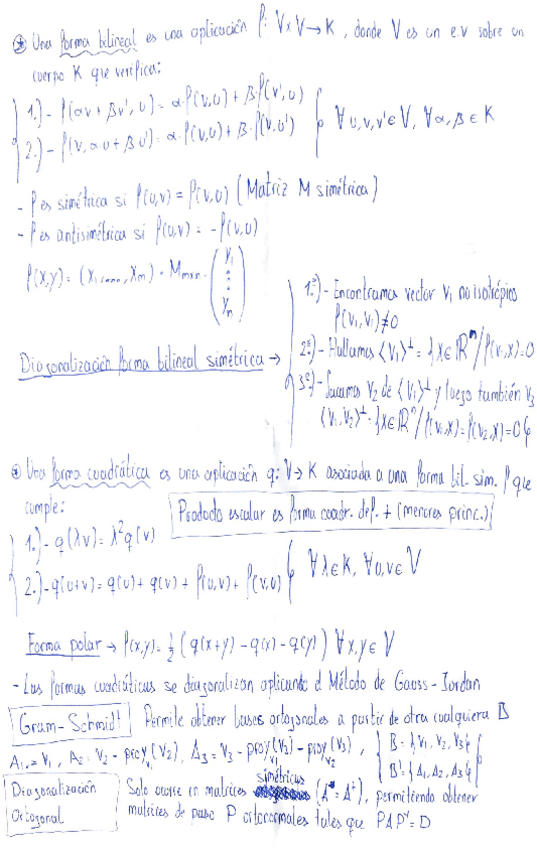 ⊛ Una forma bilineal es una aplicación f: V×V→K, donde V es un e.v sobre un
cuerpo K que verifica:
1.)- f(αv + βv', u) = α·f(v,u) + β·f(v', u)
2.)- f(v, αu + βu') = α·f(v,u) + β·f(v,u')
∀ u, v, v' ∈ V, ∀ α, β ∈ K
- f es simétrica si f(u,v) = f(v,u) (Matriz M simétrica)
- f es antisimétrica si f(u,v) = -f(v,u)
f(x,y) = (x₁,...,xₘ) · Mₘₓₙ · (y₁ ⋮ yₙ)
Diagonalización forma bilineal simétrica →
1º)- Encontramos vector v₁ no isotrópico
f(v₁,v₁)≠0
2º)- Hallamos <v₁>⊥ = {x∈ℝⁿ/f(v₁,x)=0
3º)- Sacamos v₂ de <v₁>⊥ y luego también v₃
<v₁,v₂>⊥ = {x∈ℝⁿ/f(v₁,x)=f(v₂,x)=0}
⊛ Una forma cuadrática es una aplicación q: V→K asociada a una forma bil. sim. f que
cumple:
Producto escalar es forma cuadr. def. + (menores princ.)
1.)- q(λv) = λ²q(v)
2.)- q(u+v) = q(u) + q(v) + f(u,v) + f(v,u)
∀ λ∈K, ∀ u,v∈V
Forma polar → f(x,y) = ½ (q(x+y) - q(x) - q(y)) ∀ x,y ∈ V
- Las formas cuadráticas se diagonalizan aplicando el Método de Gauss-Jordan
Gram-Schmidt Permite obtener bases ortogonales a partir de otra cualquiera B
A₁ = v₁, A₂ = v₂ - proy_v₁(v₂), A₃ = v₃ - proy_v₁(v₃) - proy_v₂(v₃),
B = {v₁, v₂, v₃}
B' = {A₁, A₂, A₃}
Diagonalización
Ortogonal
Solo ocurre en matrices simétricas (A = Aᵗ), permitiendo obtener
matrices de paso P ortonormales tales que PAPᵗ = D